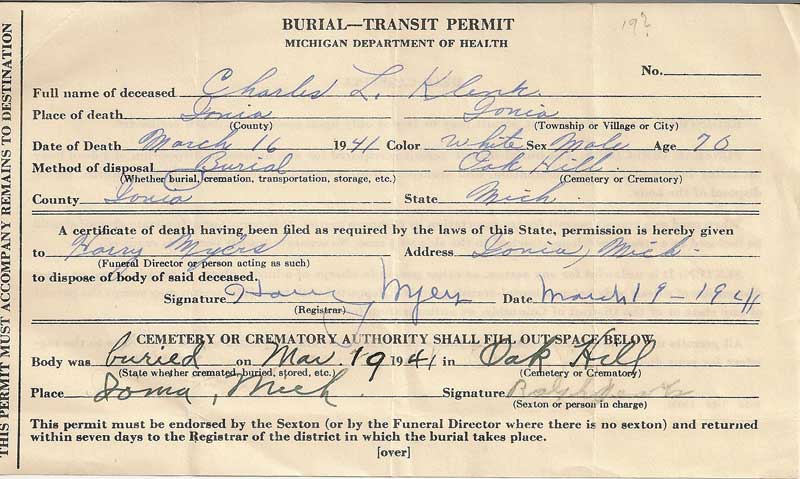 19?
BURIAL—TRANSIT PERMIT
MICHIGAN DEPARTMENT OF HEALTH
No.
Full name of deceased Charles L. Klenk.
Place of death Ionia Ionia
(County) (Township or Village or City)
Date of Death March 16 1941 Color White Sex Male Age 70
Method of disposal Burial Oak Hill.
(Whether burial, cremation, transportation, storage, etc.) (Cemetery or Crematory)
County Ionia State Mich.
A certificate of death having been filed as required by the laws of this State, permission is hereby given
to Harry Myers Address Ionia, Mich.
(Funeral Director or person acting as such)
to dispose of body of said deceased.
Signature Harry Myers Date March 19-1941
(Registrar)
CEMETERY OR CREMATORY AUTHORITY SHALL FILL OUT SPACE BELOW
Body was buried on Mar. 19 1941 in Oak Hill
(State whether cremated, buried, stored, etc.) (Cemetery or Crematory)
Place Ionia, Mich. Signature Ralph
(Sexton or person in charge)
This permit must be endorsed by the Sexton (or by the Funeral Director where there is no sexton) and returned
within seven days to the Registrar of the district in which the burial takes place.
[over]
THIS PERMIT MUST ACCOMPANY REMAINS TO DESTINATION